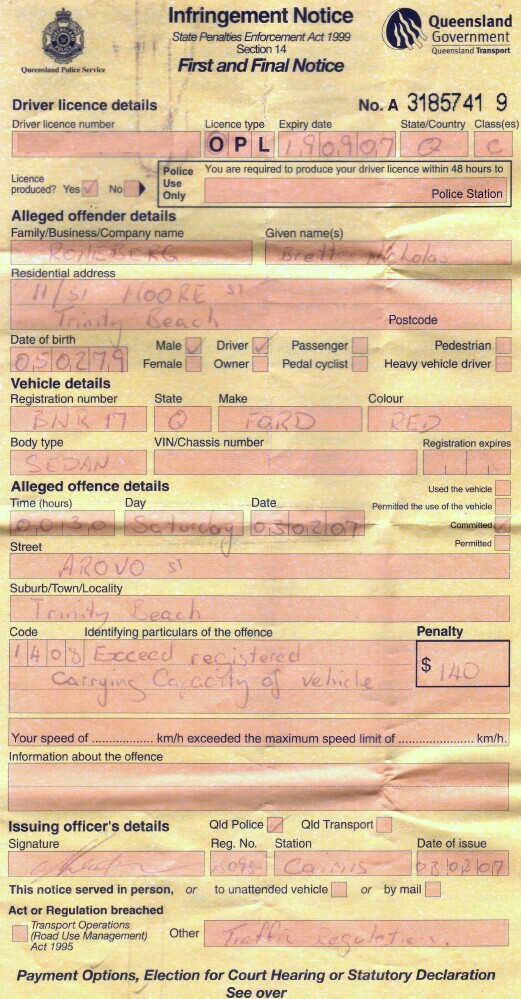 Infringement Notice
State Penalties Enforcement Act 1999
Section 14
First and Final Notice
Queensland Police Service
Queensland
Government
Queensland Transport
Driver licence details
No. A 3185741 9
Driver licence number Licence type Expiry date State/Country Class(es)
O P L 190907 Q C
Licence produced? Yes No
Police Use Only
You are required to produce your driver licence within 48 hours to
Police Station
Alleged offender details
Family/Business/Company name Given name(s)
ROMEBERG Brett Nicholas
Residential address
11/51 MOORE ST
Trinity Beach
Postcode
Date of birth Male Driver Passenger Pedestrian
050279 Female Owner Pedal cyclist Heavy vehicle driver
Vehicle details
Registration number State Make Colour
BNR 17 Q FORD RED
Body type VIN/Chassis number Registration expires
SEDAN
Alleged offence details
Used the vehicle
Time (hours) Day Date
Permitted the use of the vehicle
0030 Saturday 030207
Committed
Street
Permitted
AROVO ST
Suburb/Town/Locality
Trinity Beach
Code Identifying particulars of the offence Penalty
1408 Exceed registered
Carrying Capacity of vehicle
$ 140
Your speed of .................. km/h exceeded the maximum speed limit of ..................... km/h.
Information about the offence
Issuing officer's details Qld Police Qld Transport
Signature Reg. No. Station Date of issue
Cairns 030207
This notice served in person, or to unattended vehicle or by mail
Act or Regulation breached
Transport Operations
(Road Use Management)
Act 1995
Other Traffic Regulation.
Payment Options, Election for Court Hearing or Statutory Declaration
See over